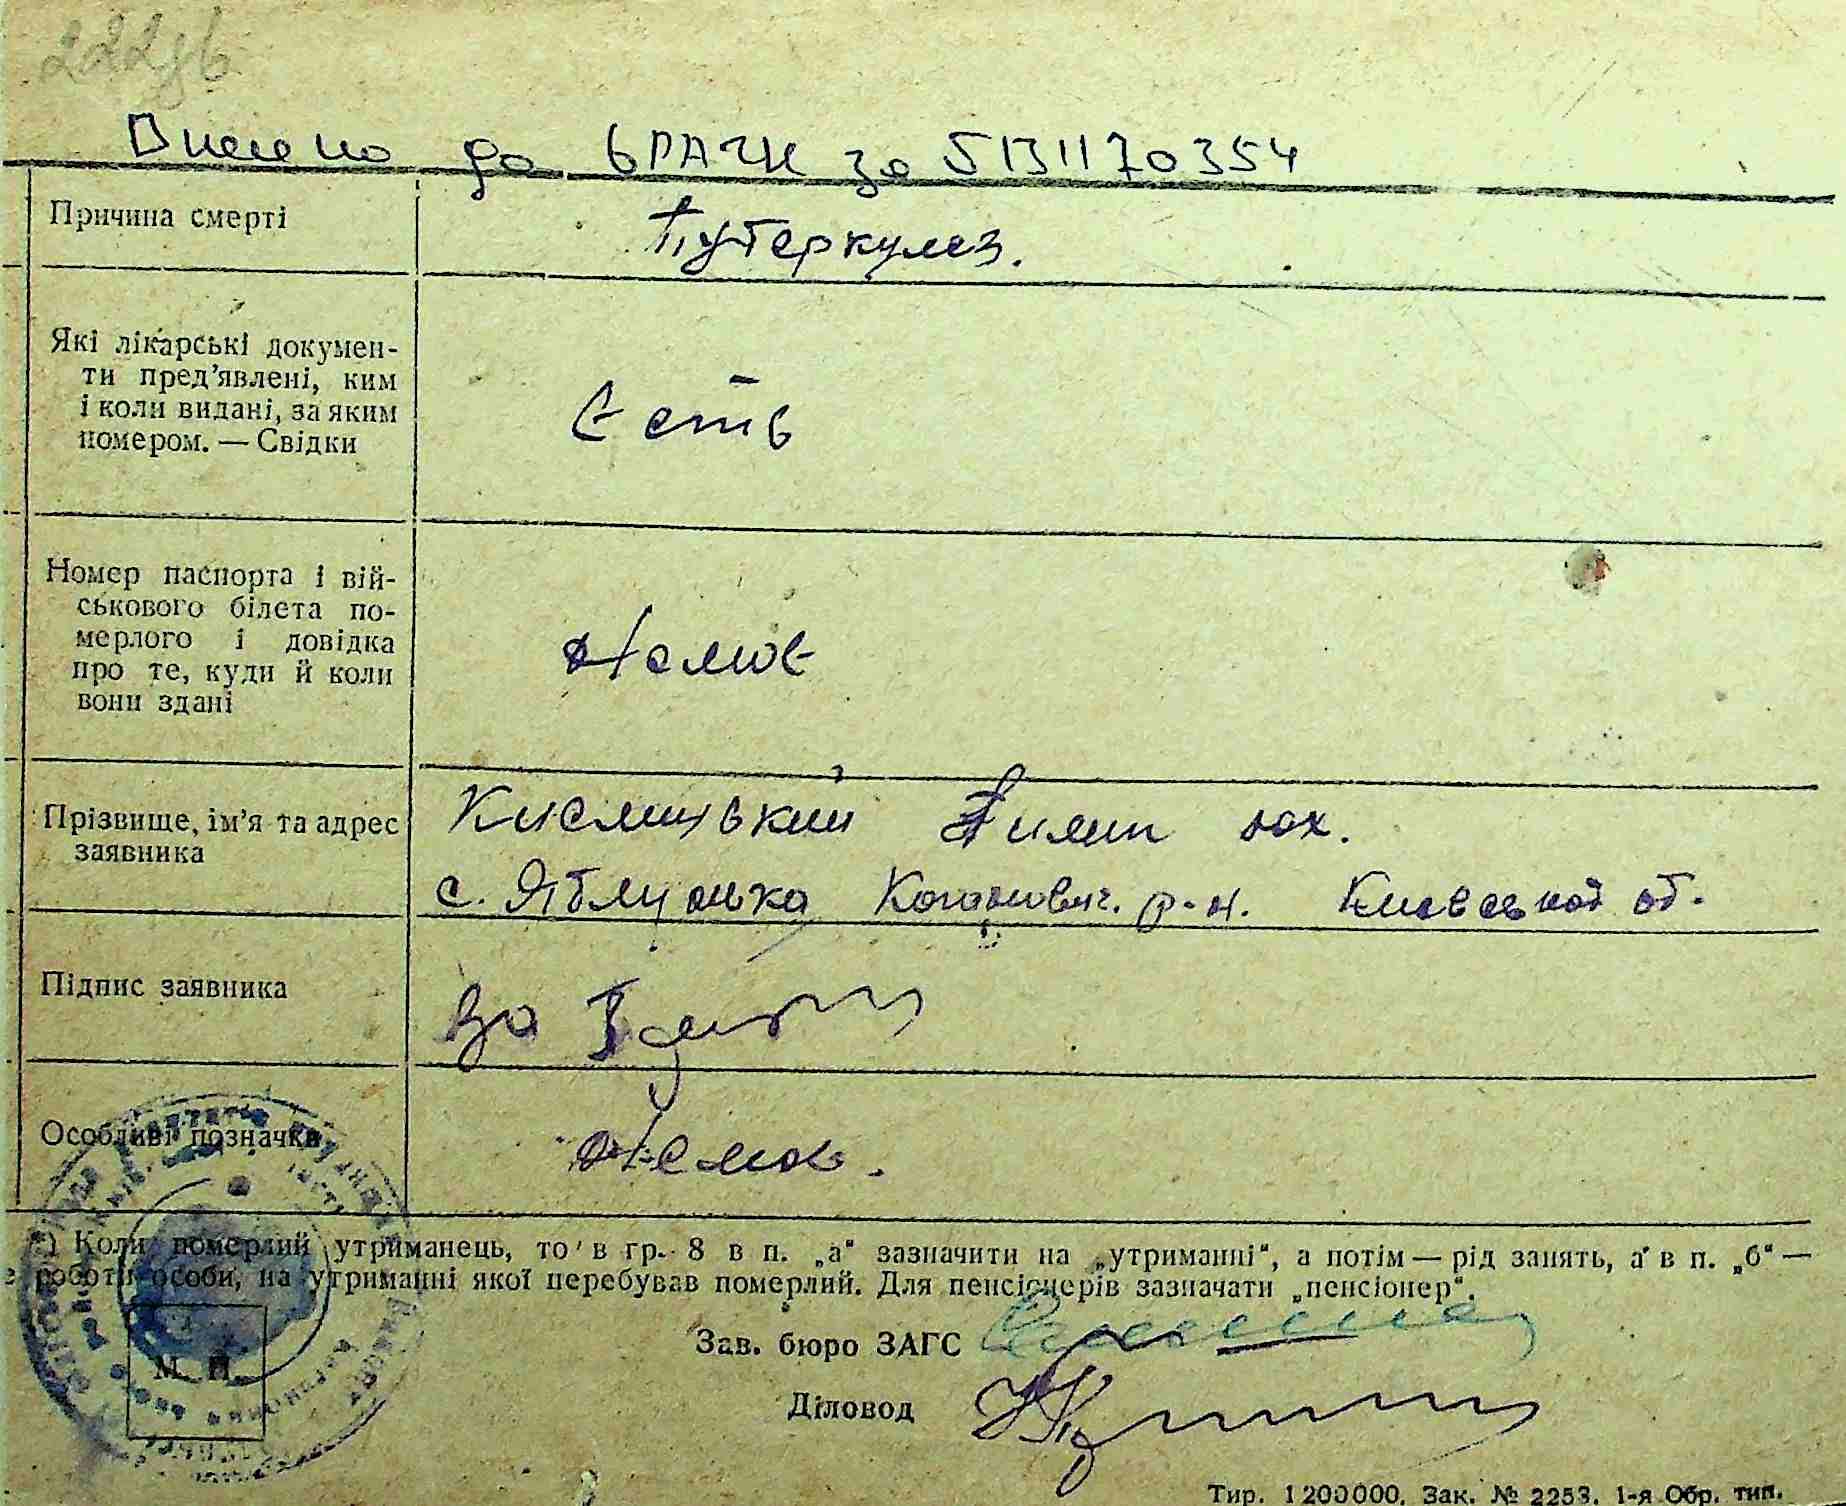 222 зв
Внесено до ЬРАЧК за 5131170354
Причина смерті
Тутеркулез.
Які лікарські докумен-
ти пред'явлені, ким
і коли видані, за яким
номером. — Свідки
Єсть
Номер паспорта і вій-
ськового білета по-
мерлого і довідка
про те, куди й коли
вони здані
Немає
Прізвище, ім'я та адрес
заявника
Пилип
с. Яблунька Каганович. р-н. Киевской об.
Підпис заявника
За
Особливі позначки
Немає.
*) Коли померлий утриманець, то в гр. 8 в п. „а“ зазначити на „утриманні“, а потім — рід занять, а в п. „б“ —
е роботи особи, на утриманні якої перебував померлий. Для пенсіонерів зазначати „пенсіонер“.
Зав. бюро ЗАГС
М. П.
Діловод
Тир. 1200000. Зак. № 2253. 1-я Обр. тип.